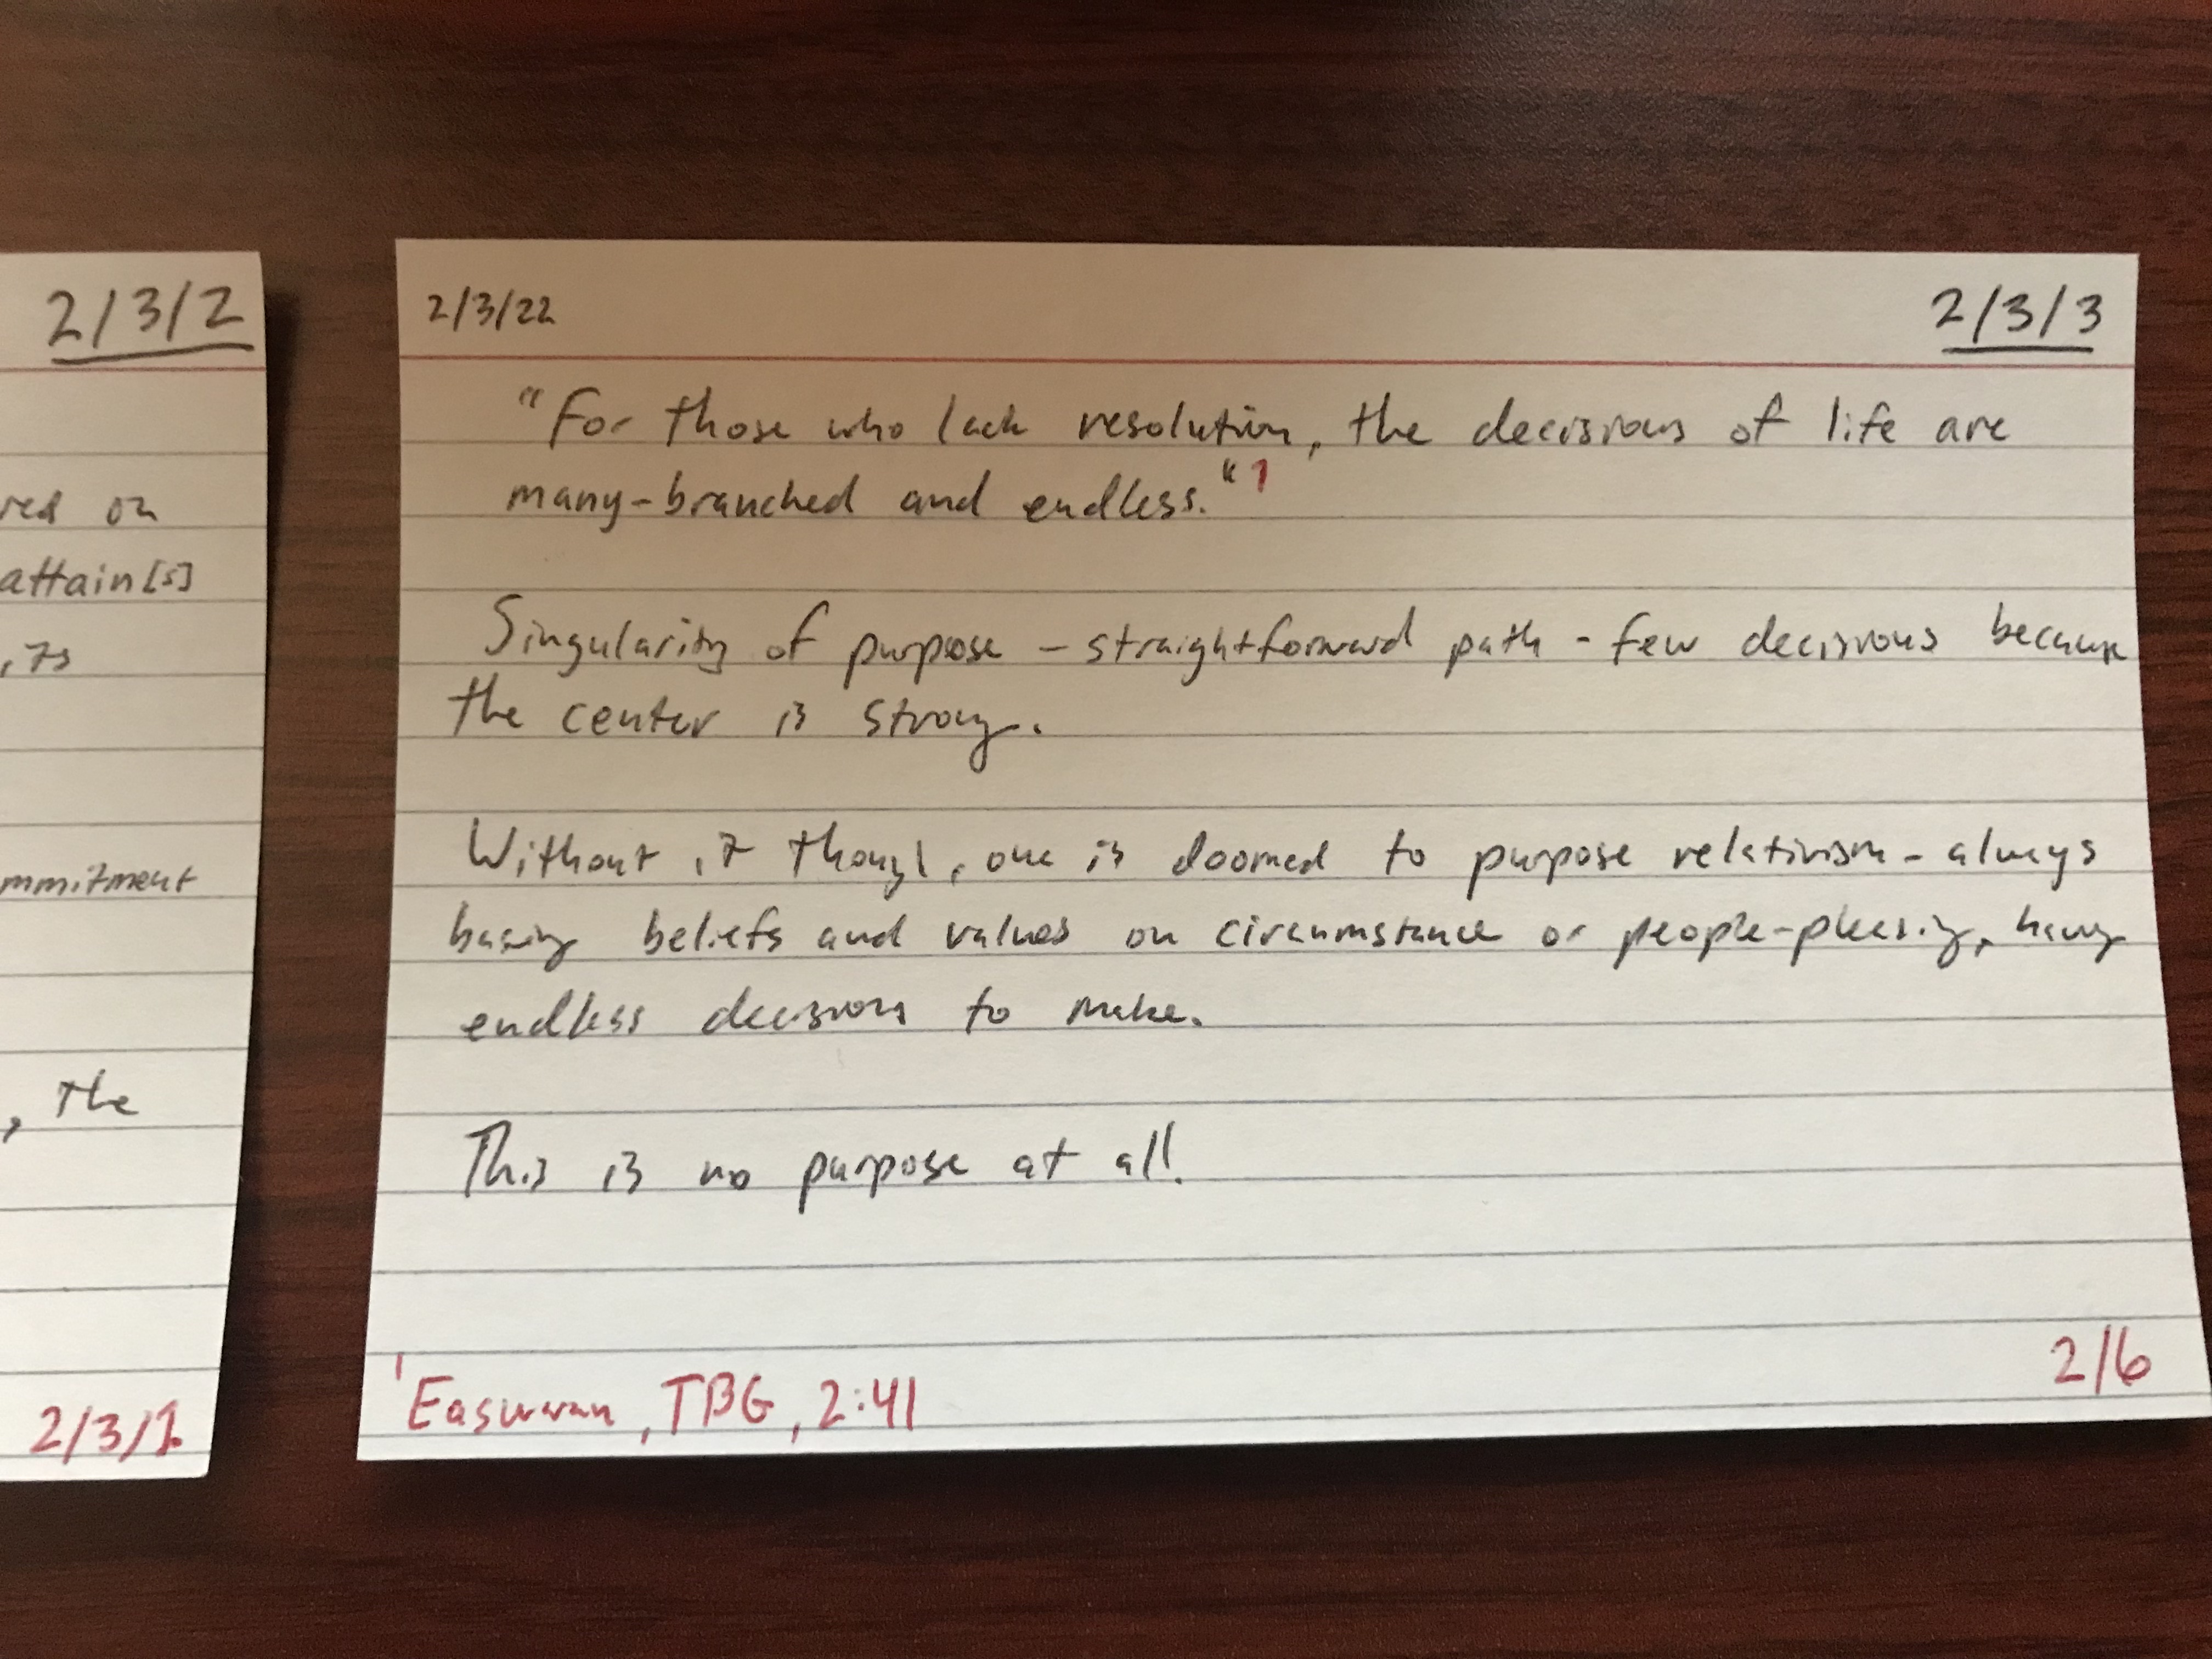 2/3/2
red on
attain[s]
mmitment
, the
2/3/1
2/3/22
2/3/3
"For those who lack resolution, the decisions of life are
many-branched and endless."1
Singularity of purpose - straightforward path - few decisions because
the center is strong.
Without it though, one is doomed to purpose relativism - always
basing beliefs and values on circumstance or people-pleasing, having
endless decisions to make.
This is no purpose at all.
1Easwaran, TBG, 2:41
2/6